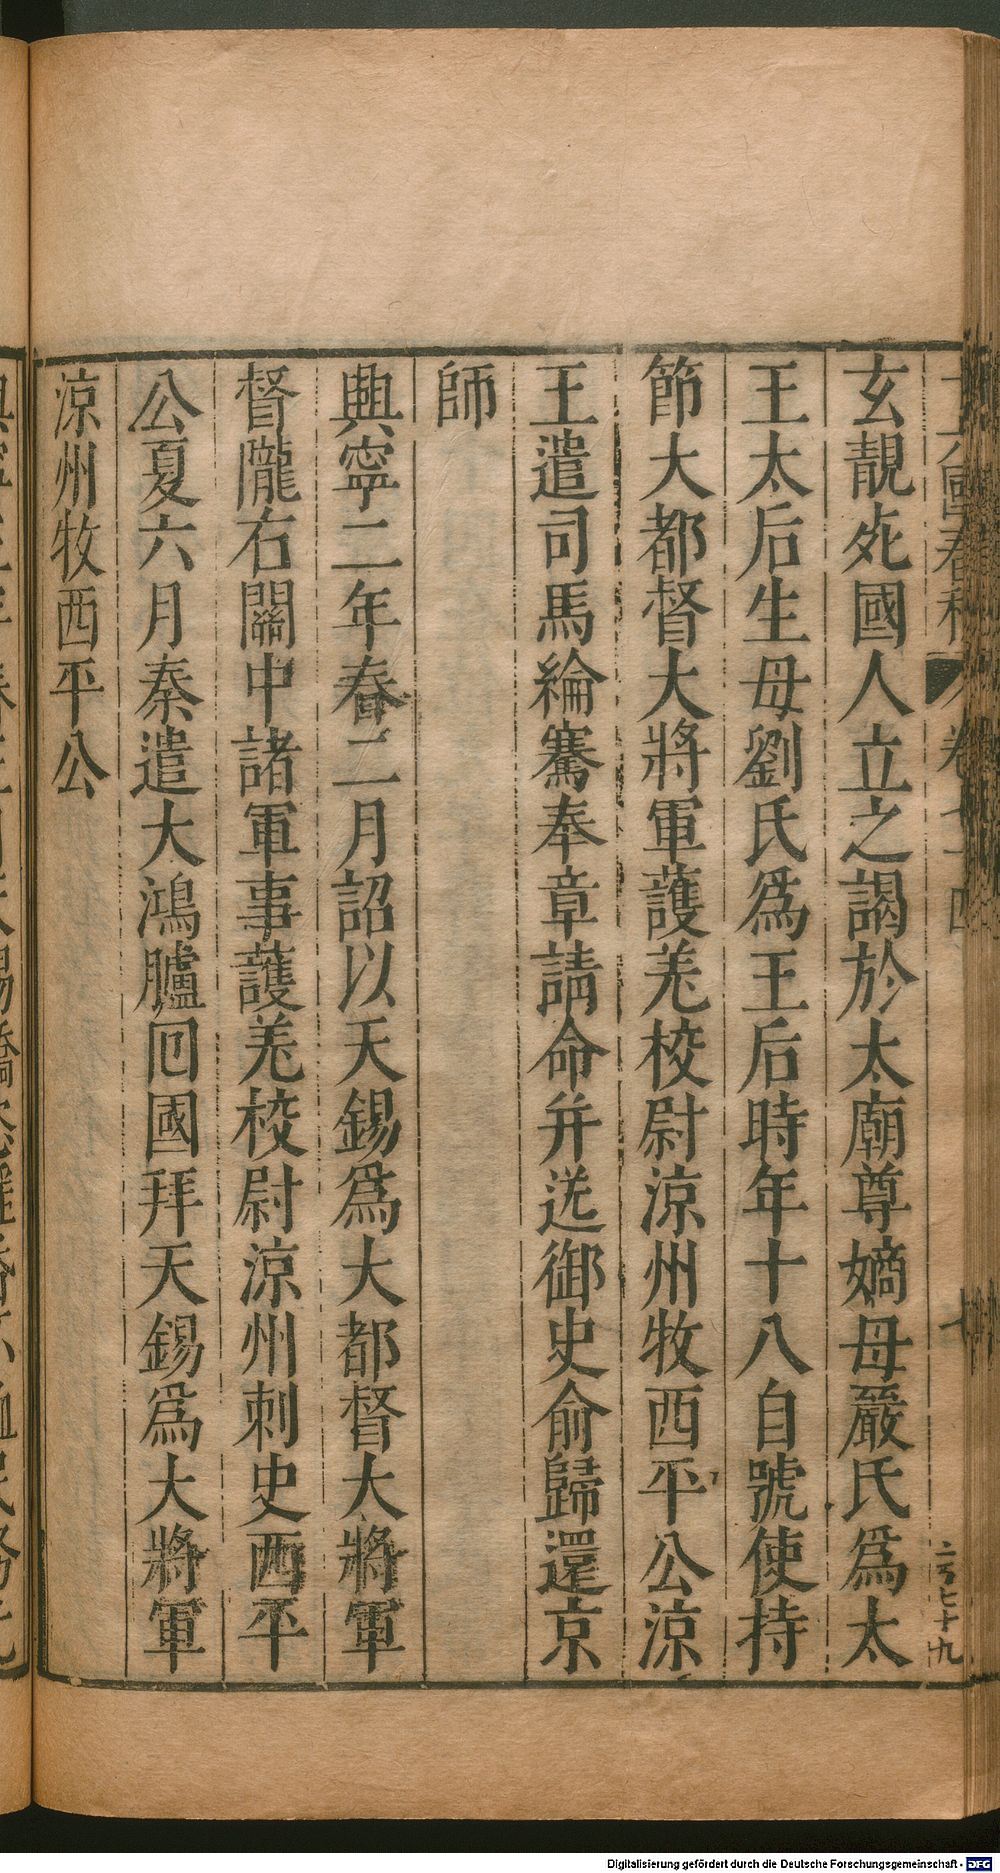 玄靚死國人立之謁於太廟尊嫡母嚴氏爲太
王太后生母劉氏爲王后時年十八自號使持
節大都督大將軍護羌校尉涼州牧西平公涼
王遣司馬綸騫奉章請命并送御史俞歸還京
師
興寧二年春二月詔以天錫爲大都督大將軍
督隴右關中諸軍事護羌校尉涼州刺史西平
公夏六月秦遣大鴻臚回國拜天錫爲大將軍
涼州牧西平公
Digitalisierung gefördert durch die Deutsche Forschungsgemeinschaft - DFG